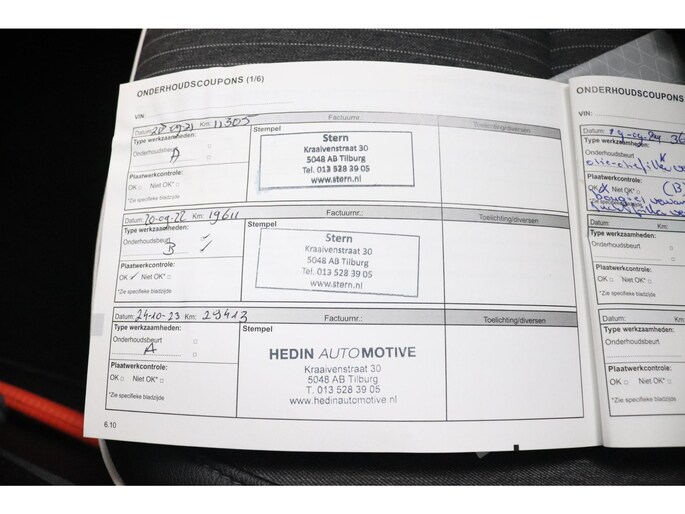 ONDERHOUDSCOUPONS (1/6)
VIN:
Datum: 20-09-21 Km: 11505 Factuurnr.: Toelichting/diversen
Type werkzaamheden:
Onderhoudsbeurt
A
Plaatwerkcontrole:
OK Niet OK*
*Zie specifieke bladzijde
Stempel
Stern
Kraaivenstraat 30
5048 AB Tilburg
Tel. 013 528 39 05
www.stern.nl
Datum: 20-09-22 Km: 19611 Factuurnr.: Toelichting/diversen
Type werkzaamheden:
Onderhoudsbeurt
B
Plaatwerkcontrole:
OK Niet OK*
*Zie specifieke bladzijde
Stempel
Stern
Kraaivenstraat 30
5048 AB Tilburg
Tel. 013 528 39 05
www.stern.nl
Datum: 24-10-23 Km: 29413 Factuurnr.: Toelichting/diversen
Type werkzaamheden:
Onderhoudsbeurt
A
Plaatwerkcontrole:
OK Niet OK*
*Zie specifieke bladzijde
Stempel
HEDIN AUTOMOTIVE
Kraaivenstraat 30
5048 AB Tilburg
T. 013 528 39 05
www.hedinautomotive.nl
6.10
ONDERHOUDSCOUPONS
VIN:
Datum: 36
Type werkzaamheden:
olie-oliefilter
Plaatwerkcontrole:
OK Niet OK* (B)
Datum: Km:
Type werkzaamheden:
Onderhoudsbeurt
Plaatwerkcontrole:
OK Niet OK*
*Zie specifieke bladzijde
Datum: Km:
Type werkzaamheden:
Onderhoudsbeurt
Plaatwerkcontrole:
OK Niet OK*
*Zie specifieke bladzijde